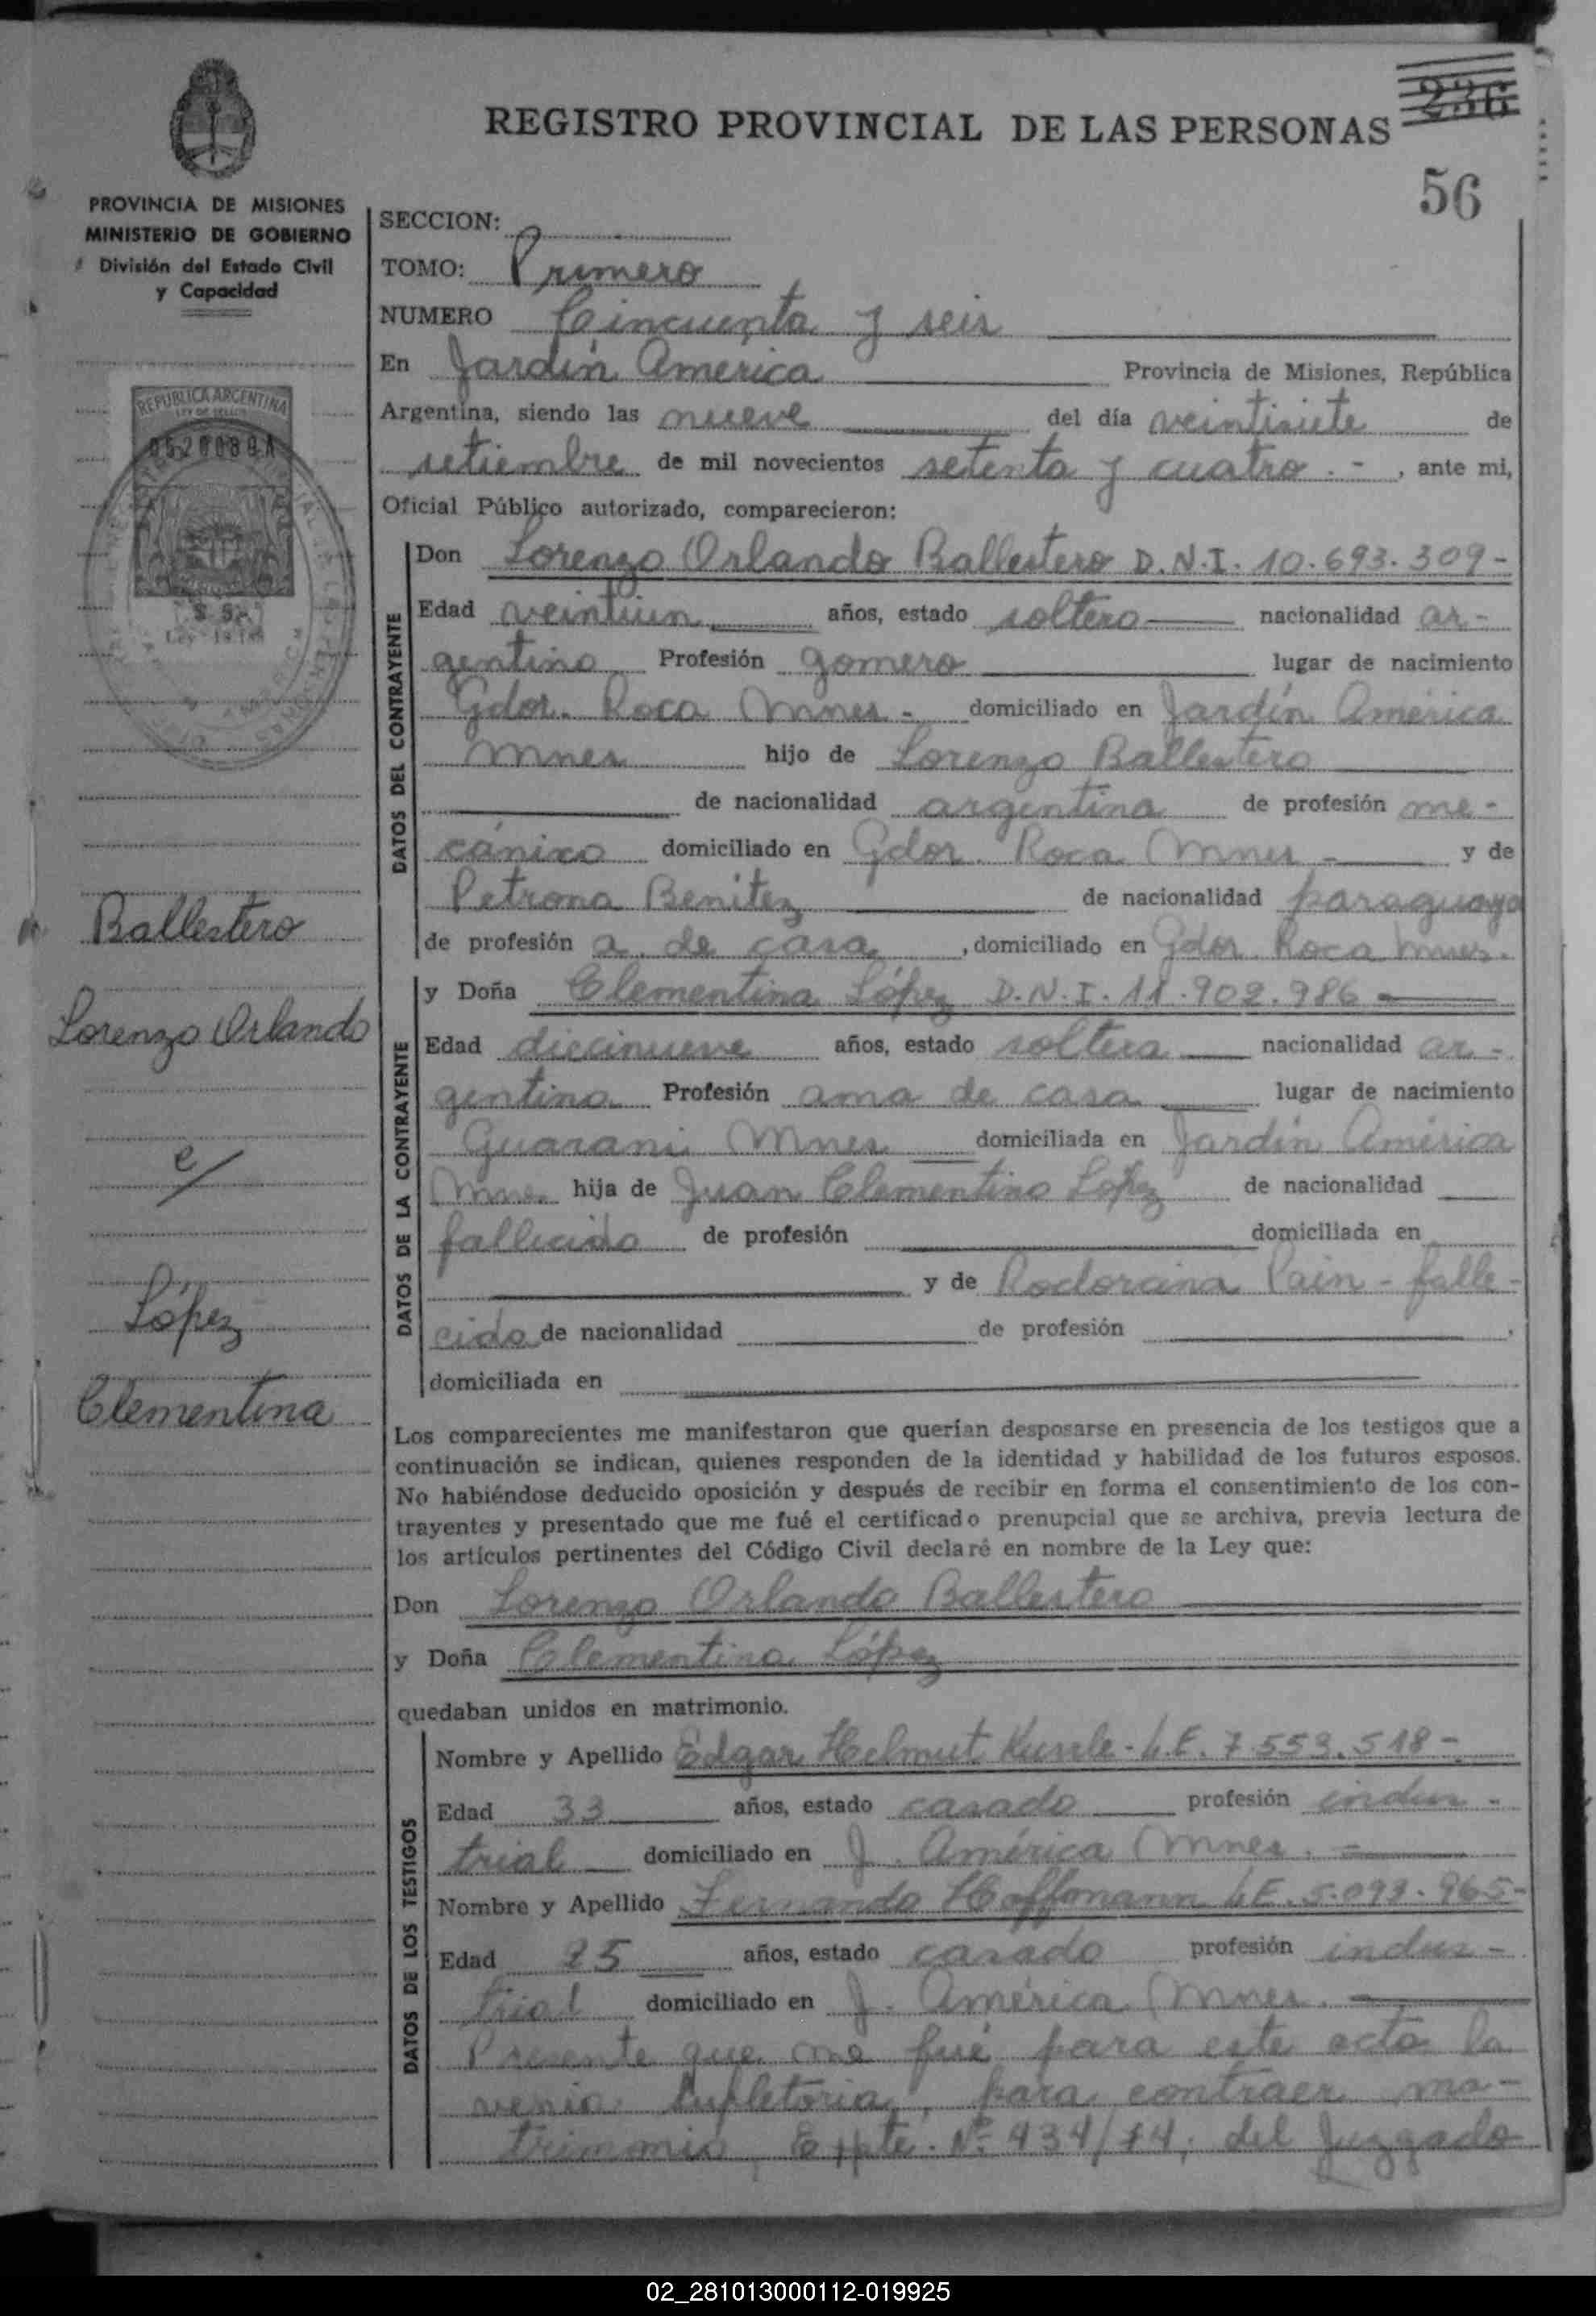 236
REGISTRO PROVINCIAL DE LAS PERSONAS
56
PROVINCIA DE MISIONES
MINISTERIO DE GOBIERNO
División del Estado Civil
y Capacidad
REPUBLICA ARGENTINA
Ballestero
Lorenzo Orlando
c/
López
Clementina
SECCION:
TOMO: Primero
NUMERO Cincuenta y seis
En Jardín America Provincia de Misiones, República
Argentina, siendo las nueve del día veintisiete de
setiembre de mil novecientos setenta y cuatro.-, ante mi,
Oficial Público autorizado, comparecieron:
DATOS DEL CONTRAYENTE
Don Lorenzo Orlando Ballestero D.N.I. 10.693.309-
Edad veintiun años, estado soltero nacionalidad ar-
gentino Profesión gomero lugar de nacimiento
Gdor. Roca Mnes- domiciliado en Jardín América
Mnes hijo de Lorenzo Ballestero
de nacionalidad argentina de profesión me-
cánico domiciliado en Gdor. Roca Mnes - y de
Petrona Benitez de nacionalidad paraguaya
de profesión a. de casa, domiciliado en Gdor. Roca Mnes.
DATOS DE LA CONTRAYENTE
y Doña Clementina López D.N.I. 11.902.986
Edad diecinueve años, estado soltera nacionalidad ar-
gentina Profesión ama de casa lugar de nacimiento
Guarani Mnes domiciliada en Jardín América
Mnes. hija de Juan Clementino López de nacionalidad
fallecido de profesión domiciliada en
y de Rodorcina Pain - falle-
cida de nacionalidad de profesión
domiciliada en
Los comparecientes me manifestaron que querían desposarse en presencia de los testigos que a
continuación se indican, quienes responden de la identidad y habilidad de los futuros esposos.
No habiéndose deducido oposición y después de recibir en forma el consentimiento de los con-
trayentes y presentado que me fué el certificado prenupcial que se archiva, previa lectura de
los artículos pertinentes del Código Civil declaré en nombre de la Ley que:
Don Lorenzo Orlando Ballestero
y Doña Clementina López
quedaban unidos en matrimonio.
DATOS DE LOS TESTIGOS
Nombre y Apellido Edgar Helmut L.E. 7.553.518-
Edad 33 años, estado casado profesión indus-
trial domiciliado en J. América Mnes.
Nombre y Apellido Fernando Hoffmann L.E. 5.093.965-
Edad 25 años, estado casado profesión indus-
trial domiciliado en J. América Mnes.
Presente que me fué para este acto la
venia supletoria, para contraer ma-
trimonio, Expte. Nº 434/74, del Juzgado
02_281013000112-019925